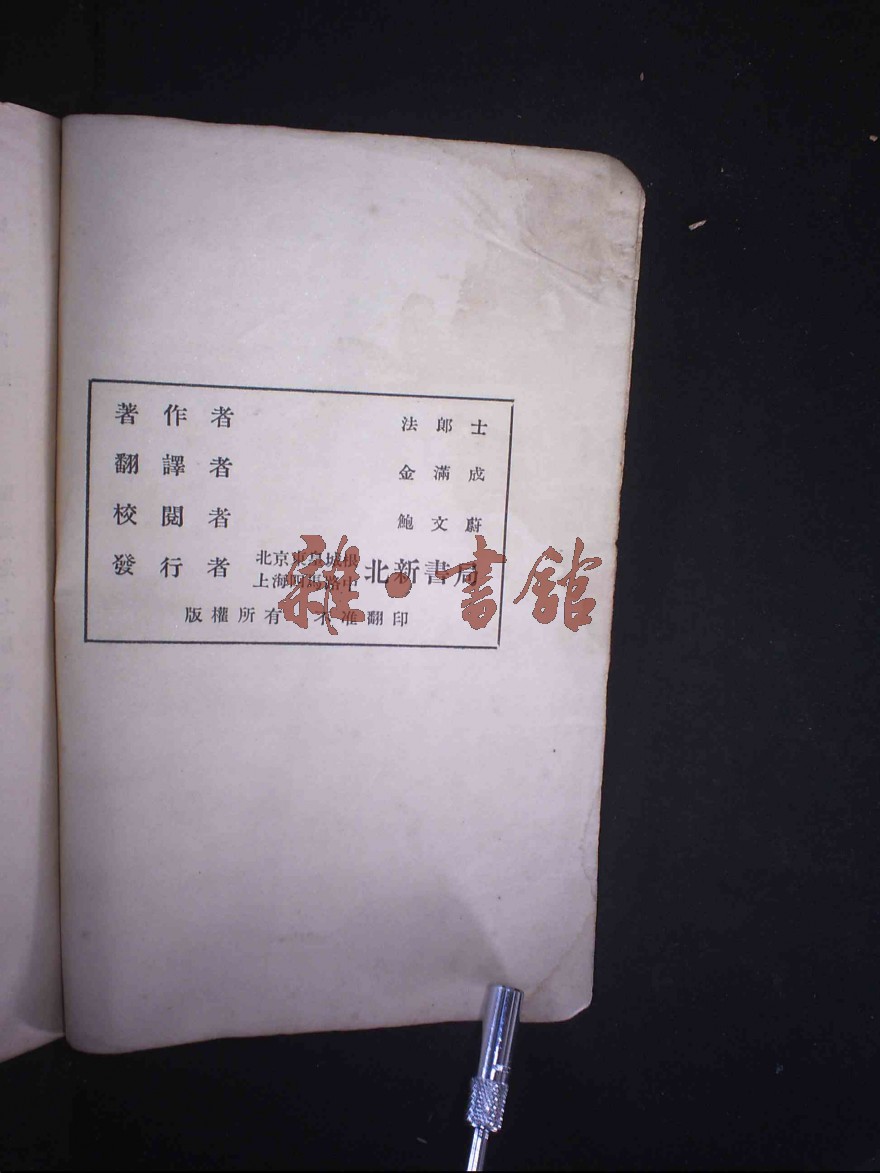 著作者 法郎士
翻譯者 金滿成
校閱者 鮑文蔚
發行者 北京東皇城根 北新書局
上海四馬路中
版權所有 不准翻印
雜·書館